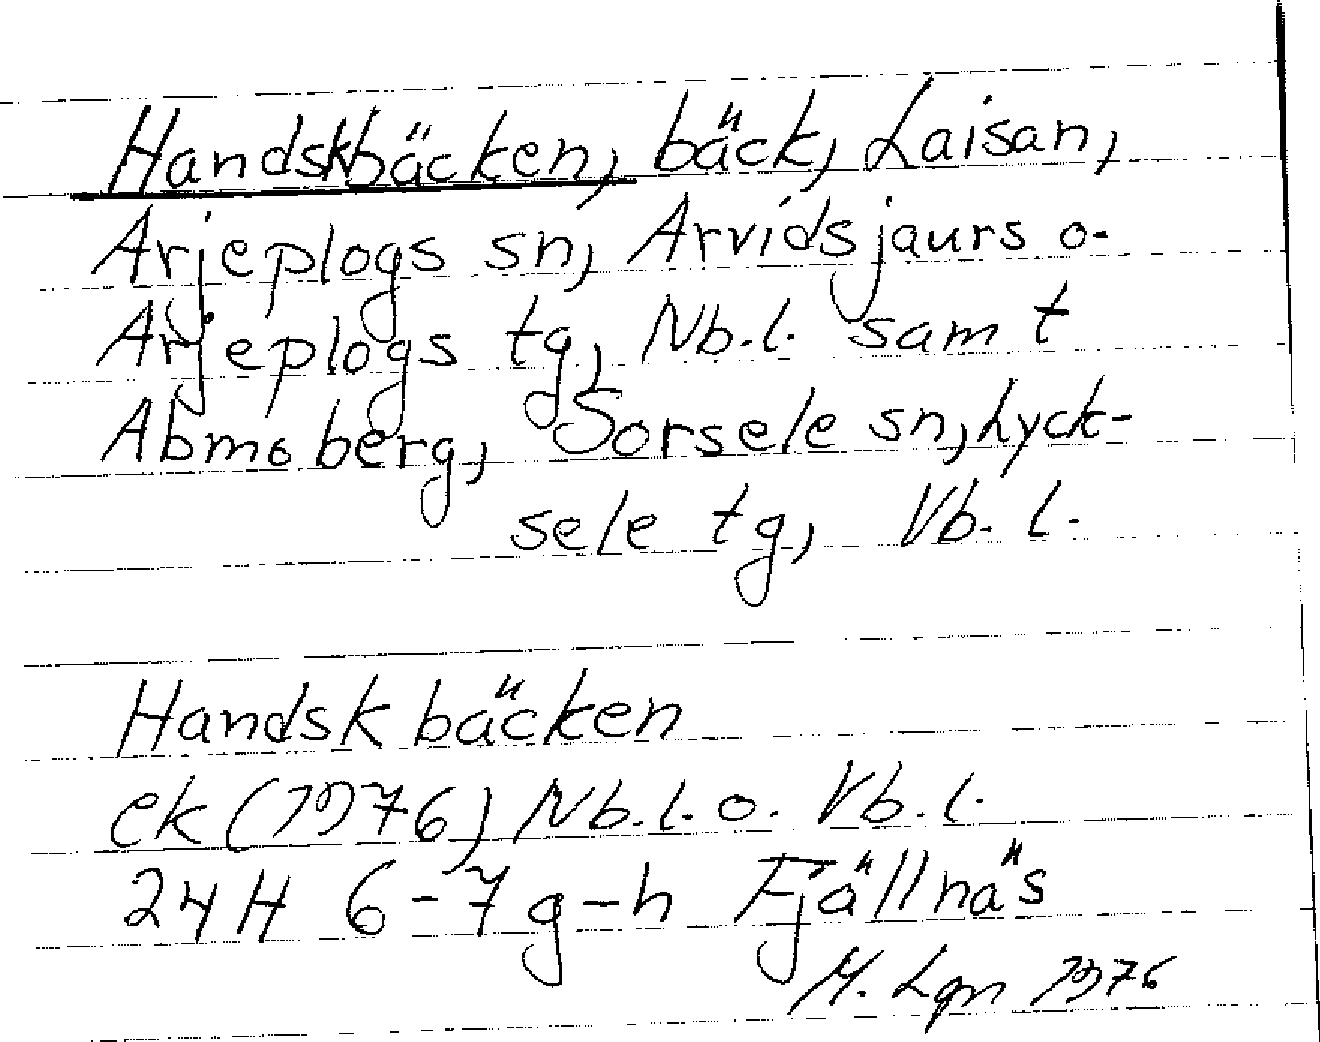 Handskbäcken, bäck, Laisan,
Arjeplogs sn, Arvidsjaurs o.
Arjeplogs tg, Nb.l. samt
Abmoberg, Sorsele sn, Lyck-
sele tg, Vb. l.
Handskbäcken
ek (1976) Nb.l. o. Vb. l.
24H 6-7 g-h Fjällnäs
M. Lgn 1976